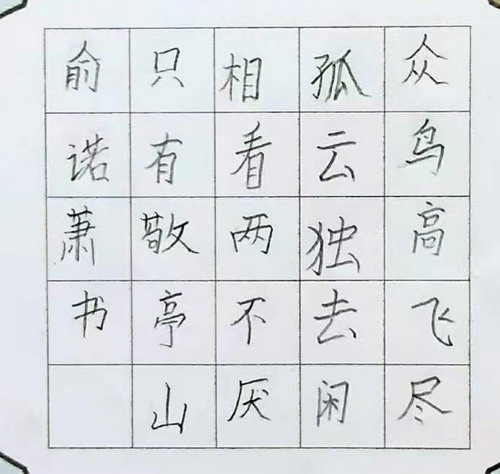 众鸟高飞尽
孤云独去闲
相看两不厌
只有敬亭山
俞诺萧书